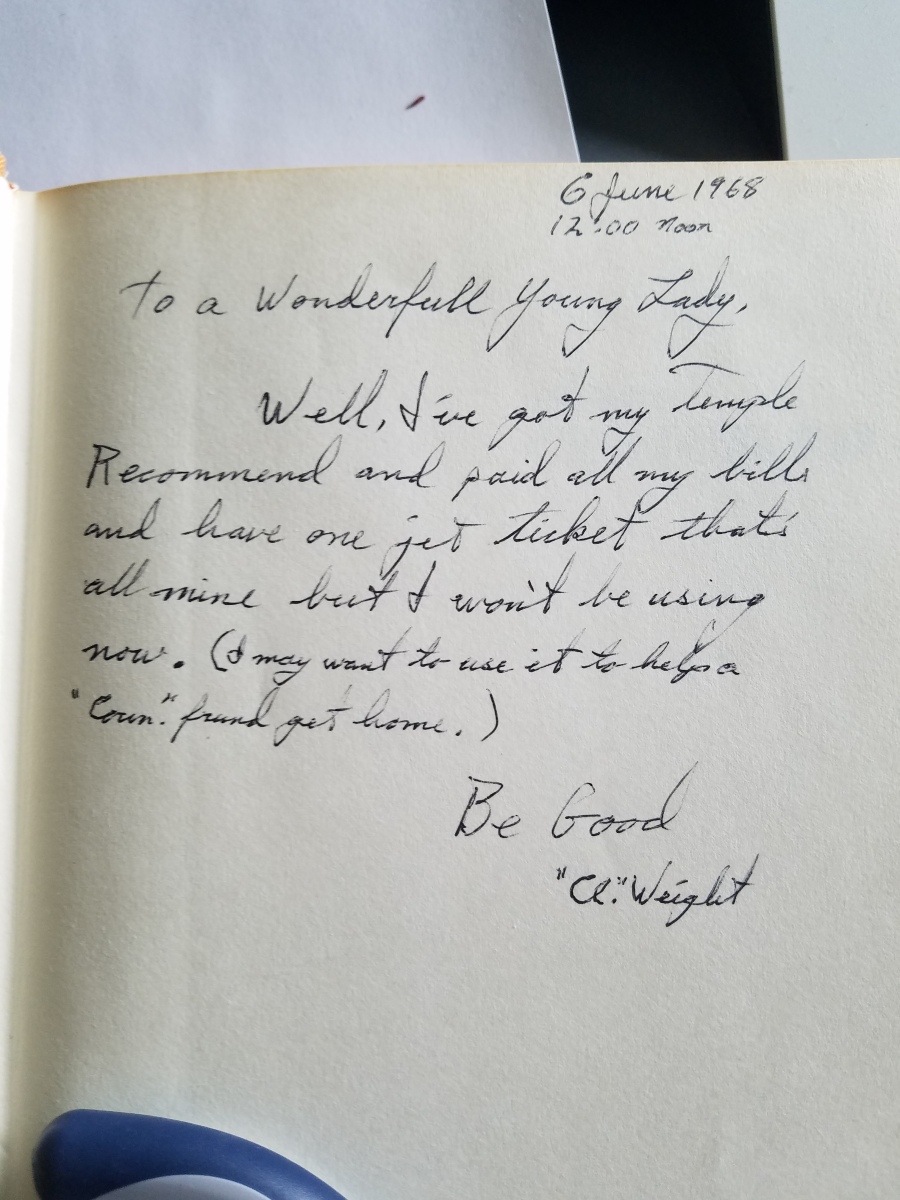 6 June 1968
12:00 Noon
To a Wonderfull Young Lady,
Well, I've got my Temple
Recommend and paid all my bills
and have one jet ticket that's
all mine but I won't be using
now. (I may want to use it to help a
"Coun." frund get home.)
Be Good
"Cl." Weight